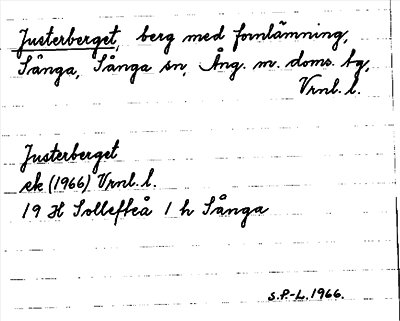 Justerberget, berg med fornlämning,
Sånga, Sånga sn, Ång. m. doms. bg,
Vrnl. l.
Justerberget
ek (1966) Vrnl. l.
19 H Sollefteå 1 h Sånga
S.P.-L. 1966.